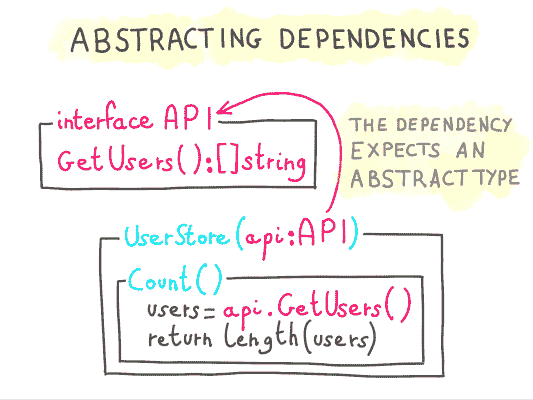 ABSTRACTING DEPENDENCIES
interface API
GetUsers():[]string
THE DEPENDENCY
EXPECTS AN
ABSTRACT TYPE
UserStore(api:API)
Count()
users=api.GetUsers()
return length(users)